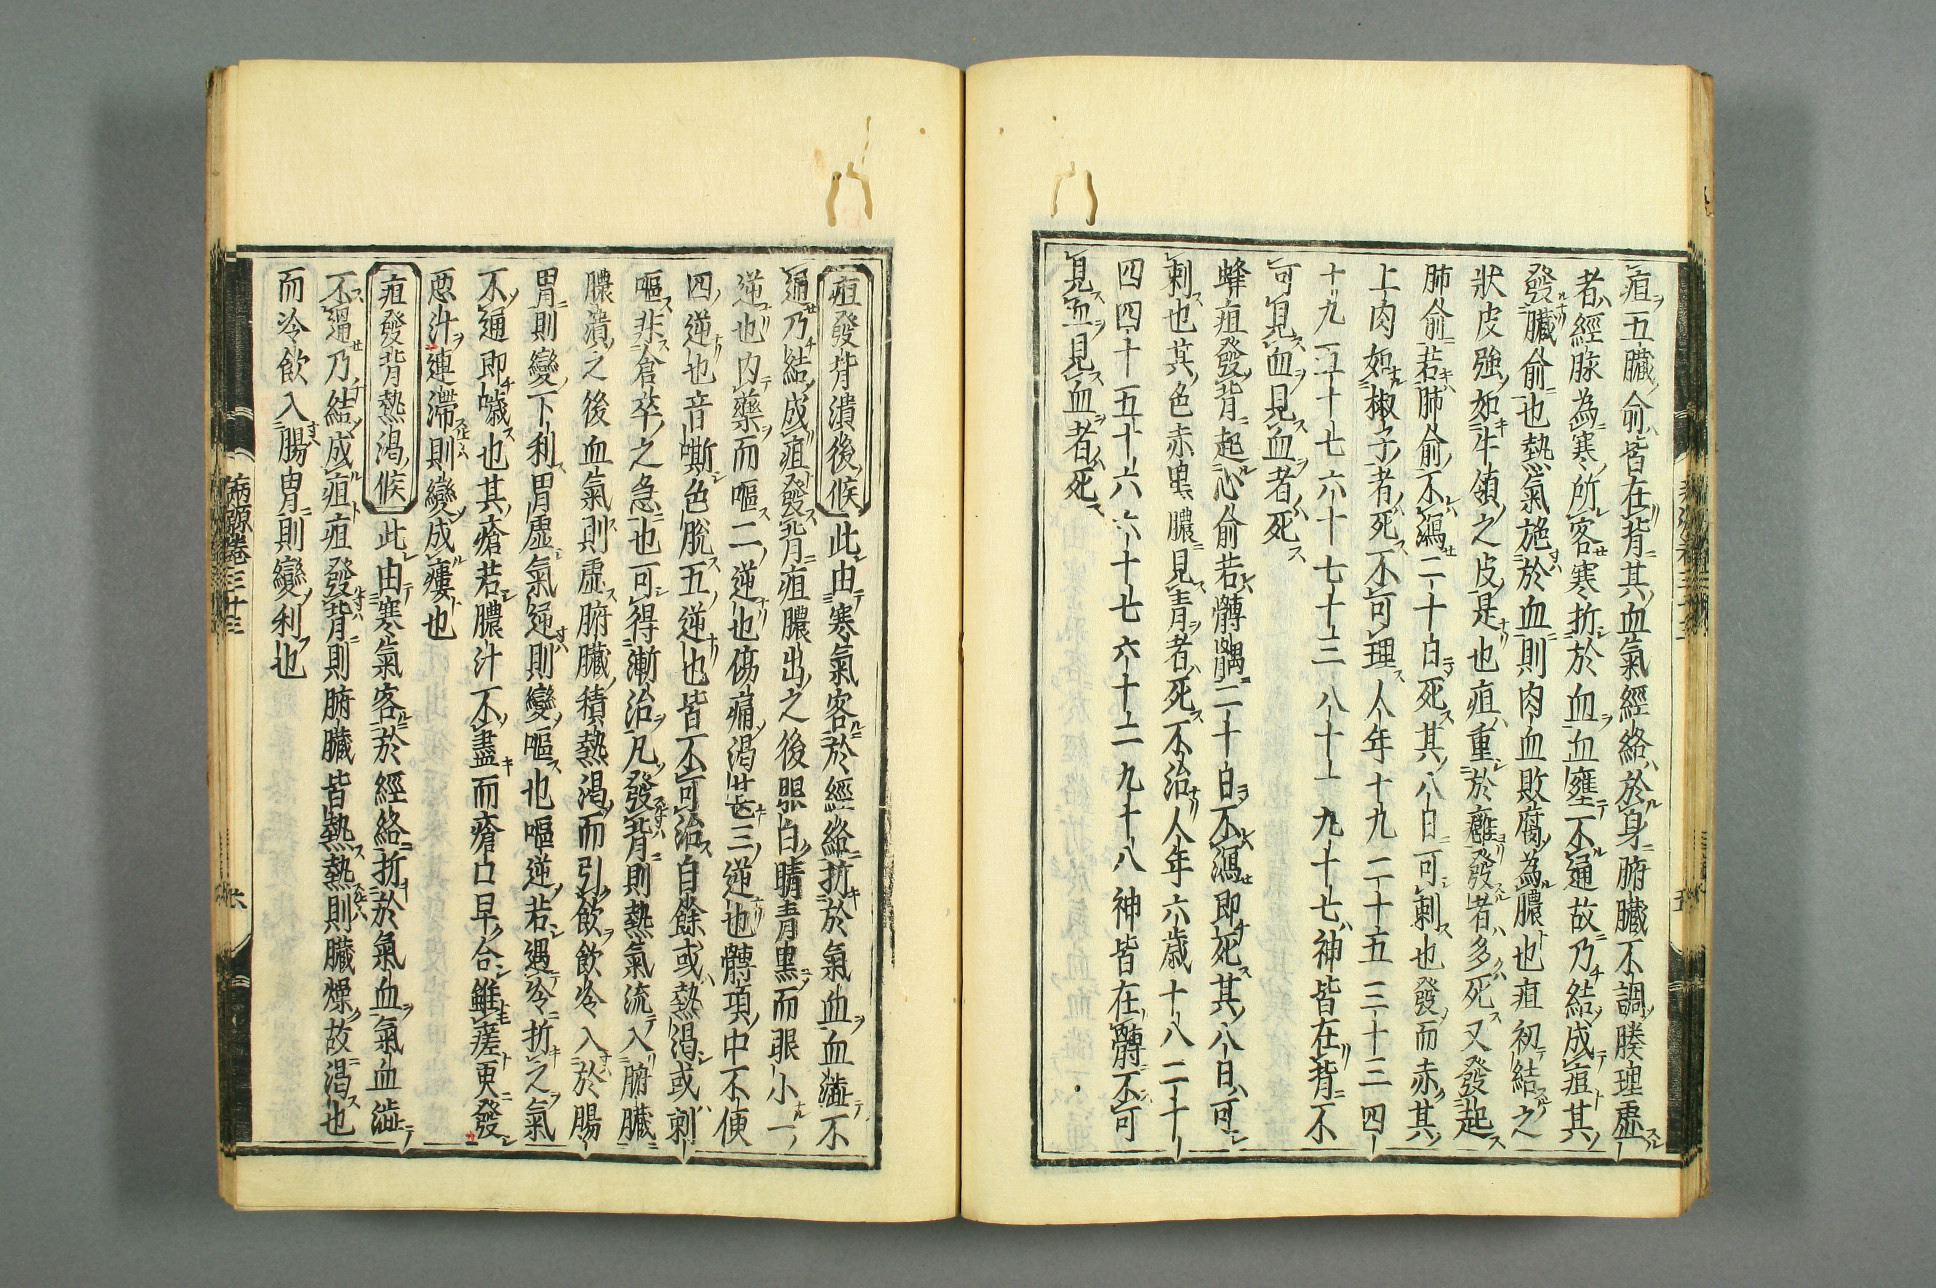 疽五臓俞皆在背其血氣經絡於身腑臓不調腠理虛
者經脉為寒所客寒折於血血壅不通故乃結成疽其
發臓俞也熱氣施於血則肉血敗腐為膿也疽初結之
狀皮強如牛領之皮是也疽重於癰發者多死又發起
肺俞若肺俞不瀉二十日死其八日可刺也發而赤其
上肉如椒子者死不可理人年十九二十五三十三四
十九五十七六十七十三八十一九十七神皆在背不
可見血見血者死
蜂疽發背起心俞若髆髃二十日不瀉即死其八日可
刺也其色赤黒膿見青者死不治人年六歳十八二十
四四十五十六六十七六十二九十八神皆在髆不可
見血見血者死
疽發背潰後候 此由寒氣客於經絡折於氣血血澁不
通乃結成疽發背疽膿出之後眼白睛青黒而眼小一
逆也内藥而嘔二逆也傷痛渴甚三逆也髆項中不便
四逆也音嘶色脱五逆也皆不可治自餘或熱渴或利
嘔非倉卒之急也可得漸治凡發背則熱氣流入腑臓
膿潰之後血氣則虛腑臓積熱渴而引飲飲冷入於腸
胃則變下利胃虛氣逆則變嘔也嘔逆若遇冷折之氣
不通即噦也其瘡若膿汁不盡而瘡口早合雖瘥更發
惡汁連滯則變成瘻也
疽發背熱渴候 此由寒氣客於經絡折於氣血氣血澁
不通乃結成疽疽發背則腑臓皆熱熱則臓燥故渴也
而冷飲入腸胃則變利也
病源巻三十三
六